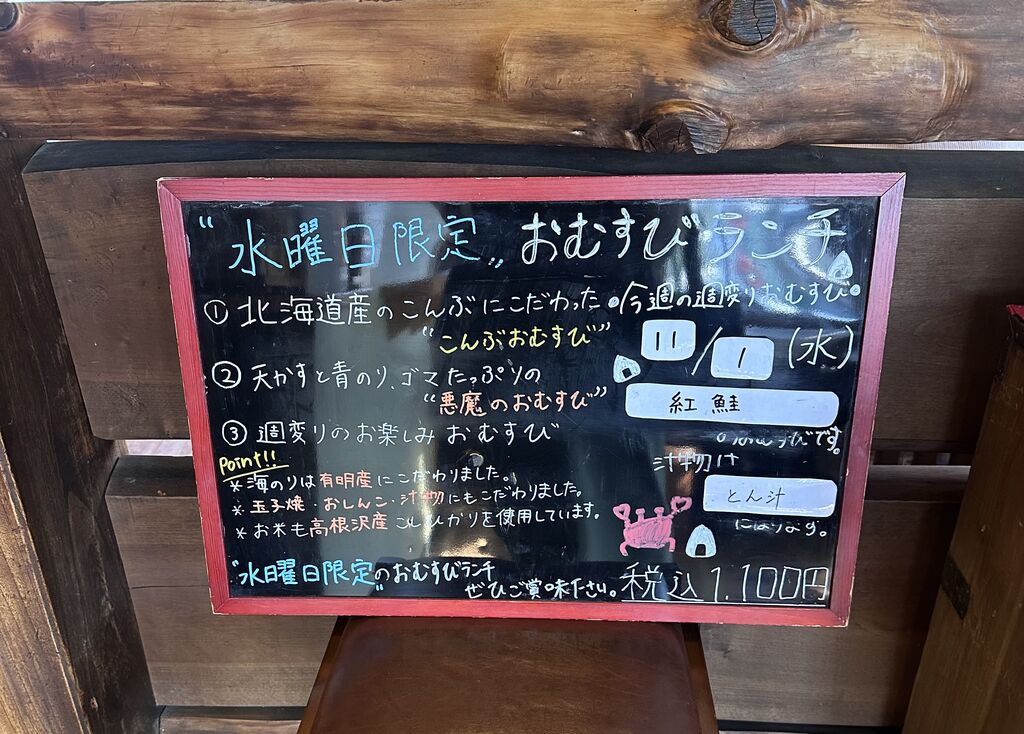 “水曜日限定”おむすびランチ
①北海道産のこんぶにこだわった
“こんぶおむすび”
②天かすと青のり、ゴマたっぷりの
“悪魔のおむすび”
③週変りのお楽しみおむすび
Point!!
*海のりは有明産にこだわりました。
*玉子焼・おしんこ・汁物にもこだわりました。
*お米も高根沢産こしひかりを使用しています。
“水曜日限定”のおむすびランチ
ぜひご賞味下さい。
。今週の週変りおむすび。
11/1(水)
紅鮭
のおむすびです。
汁物は
とん汁
になります。
税込1,100円